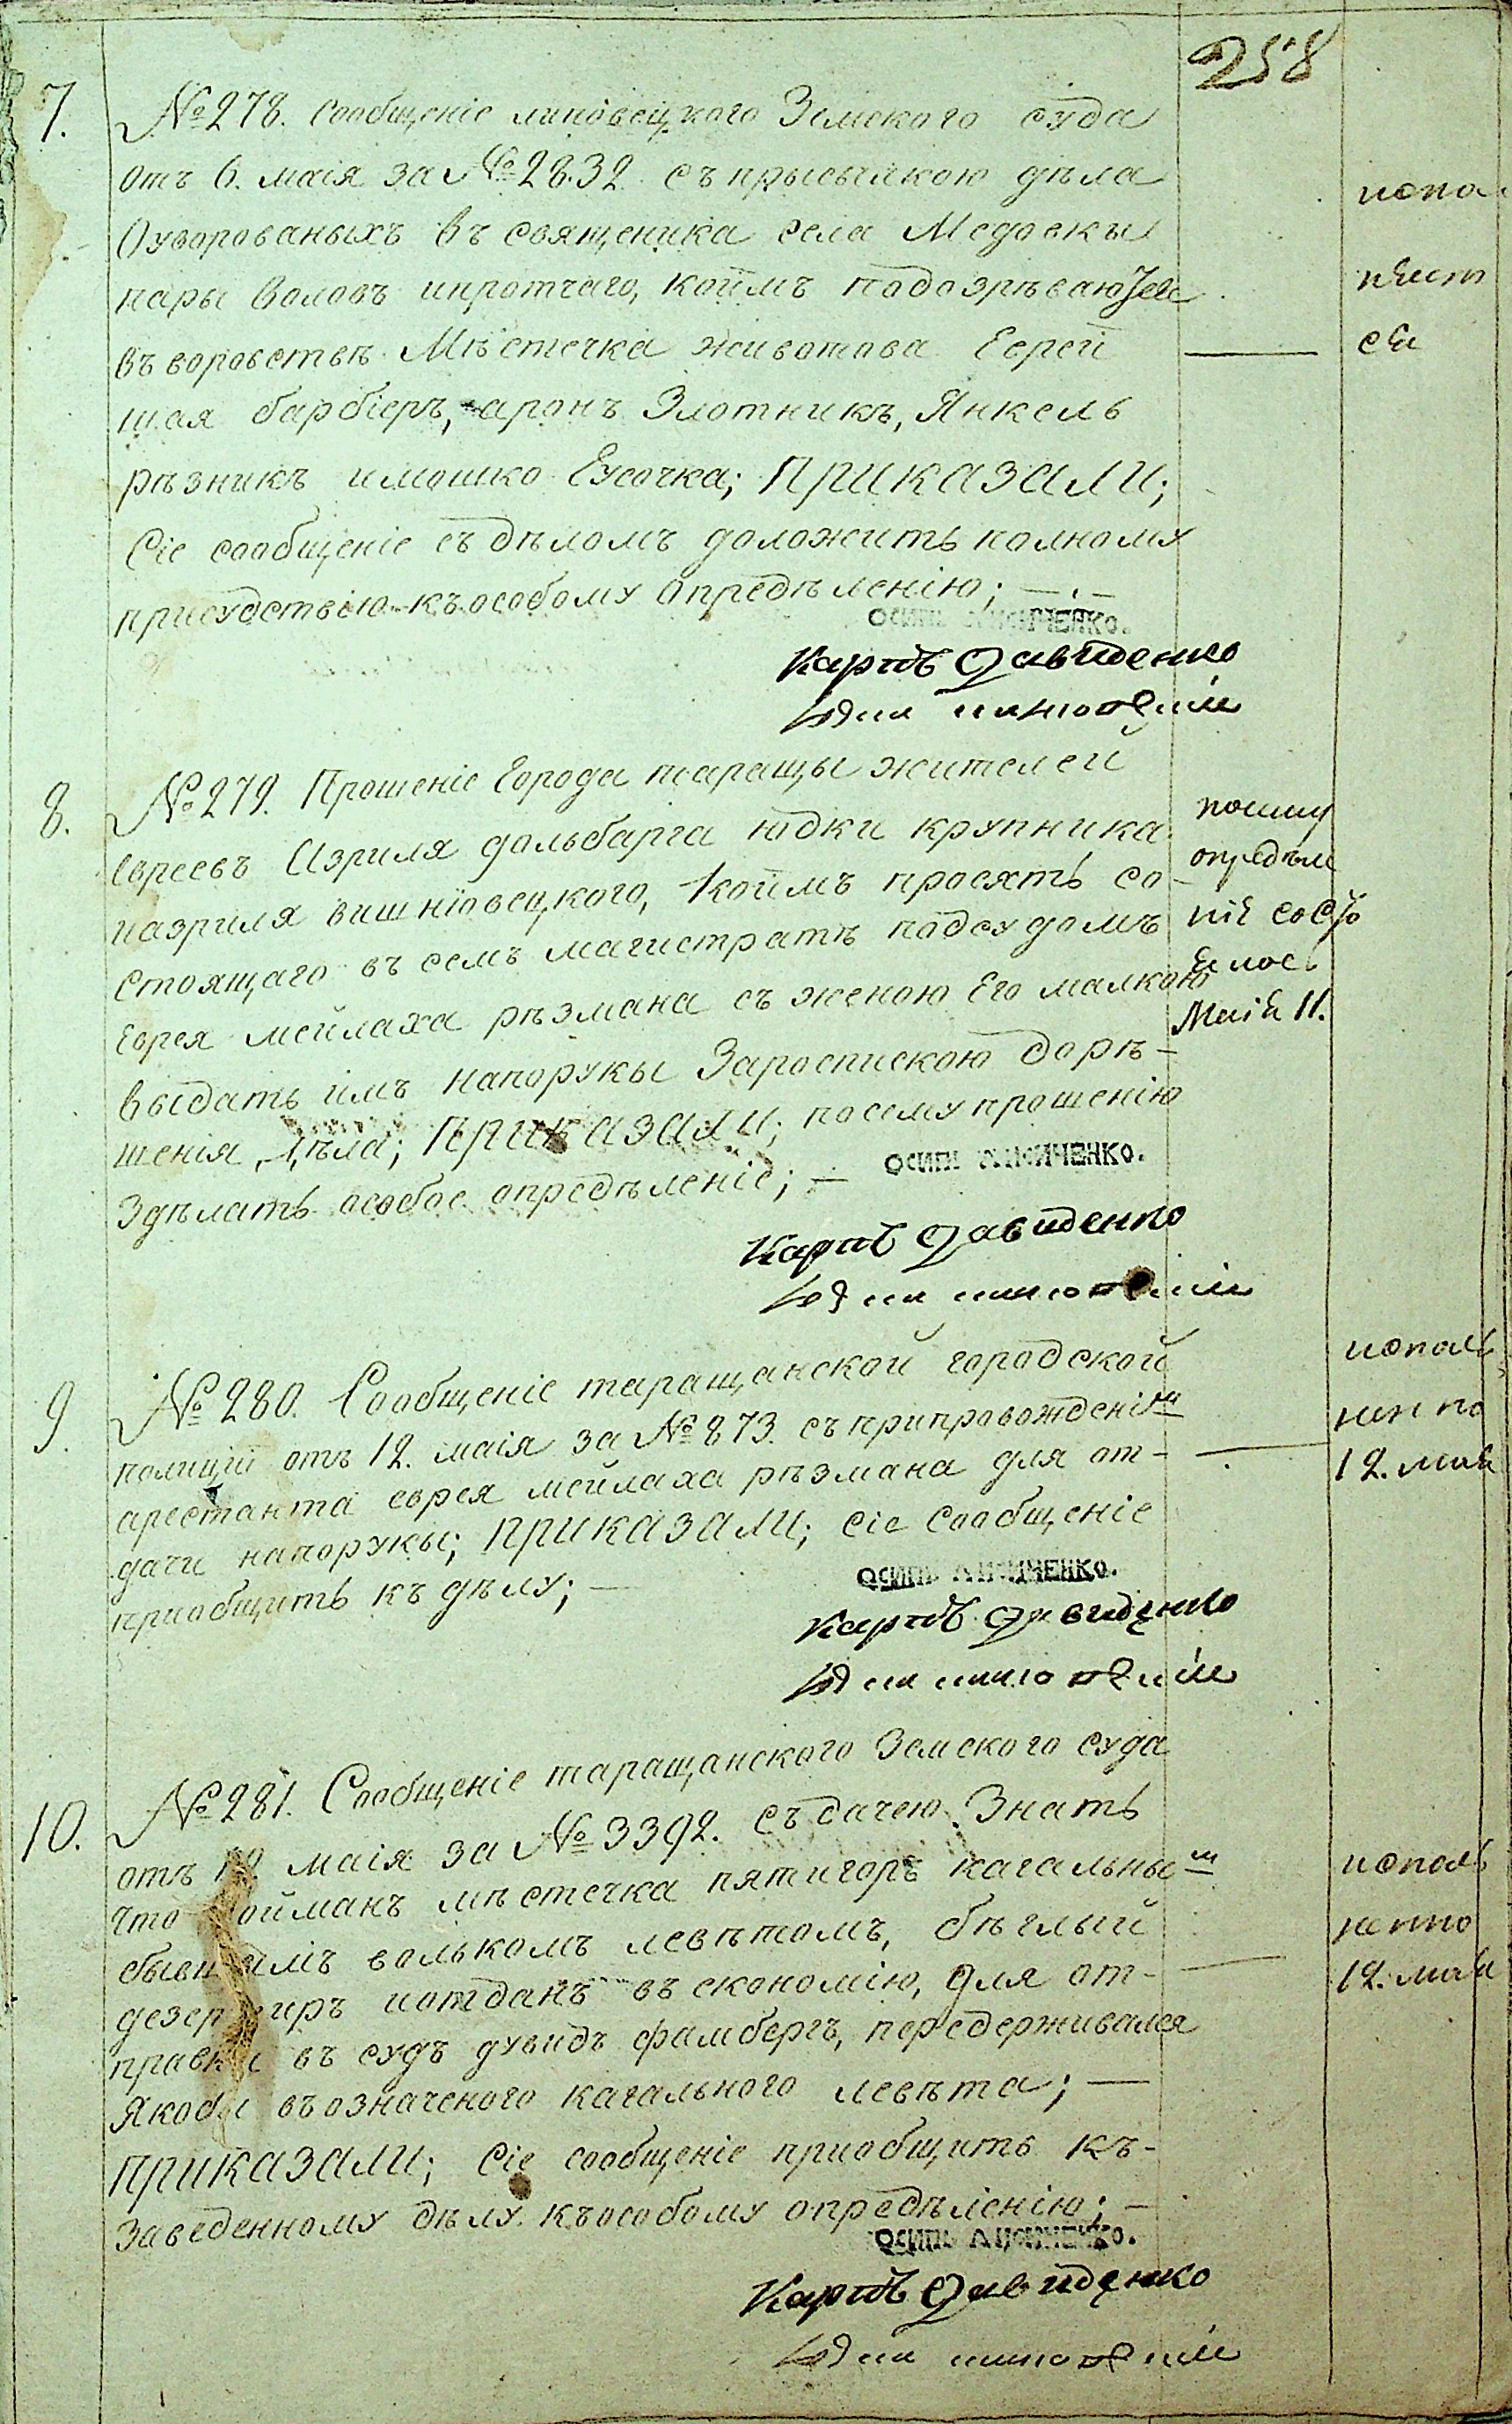 258
7.
№ 278. Сообщеніе липовецкого Земского суда
отъ 6. маія за № 2832. съ присылкою дѣла
Оуворованыхъ въ священика села Медовкы
пары воловъ ипротчаго, коимъ подозрѣваются
въ воровствѣ Мѣстечка животова Еврей
шая барбіеръ, аронъ Злотникъ, Янкель
рѣзникъ имошко Гусочка; Приказали;
Сіе сообщеніе съ дѣломъ доложить полному
присудствію къособому опредѣленію; —
Осипъ Анниченко.
Карпъ Давиденко
8.
№ 279. Прошеніе Города таращы жителей
Евреевъ Изриля дольбарга юдки крупника
иазриля вишніовецкого, коимъ просятъ со-
Стоящаго въ семъ магистратѣ подсудомъ
Еврея мейлаха рѣзмана съ женою Его малкою
выдать имъ напоруки Зароспискою дорѣ-
шенія Дѣла; Приказали; посему прошенію
Здѣлать особое опредѣленіе; —
посему
опредѣле
ніе состо
ялось
Маія 11.
Осипъ Анниченко.
Карпъ Давиденко
9.
№ 280. Сообщеніе таращанской городской
полиціи отъ 12. маія за № 873. съприпровожденіем
арестанта еврея мейлаха рѣзмана для от-
дачи напорукы; Приказали; сіе Сообщеніе
приобщить къ дѣлу; —
исполь
нен по
12. мая
Осипъ Анниченко.
Карпъ Давиденко
10.
№ 281. Сообщеніе таращанского Земского суда
отъ маія за № 3392. съ дачею Знать
что мѣстечка пятигоръ кагальным
бывшимъ волькомъ левѣтомъ, бѣглый
дезертиръ иотданъ въ економію, для от-
правки въ судъ дувидъ фамбергъ, передерживался
Якобы въозначеного кагального левѣта; —
Приказали; Сіе сообщеніе приобщить къ-
Заведенному дѣлу къособому опредѣленію; —
исполь
ненно
12. мая
Осипъ Анниченко.
Карпъ Давиденко